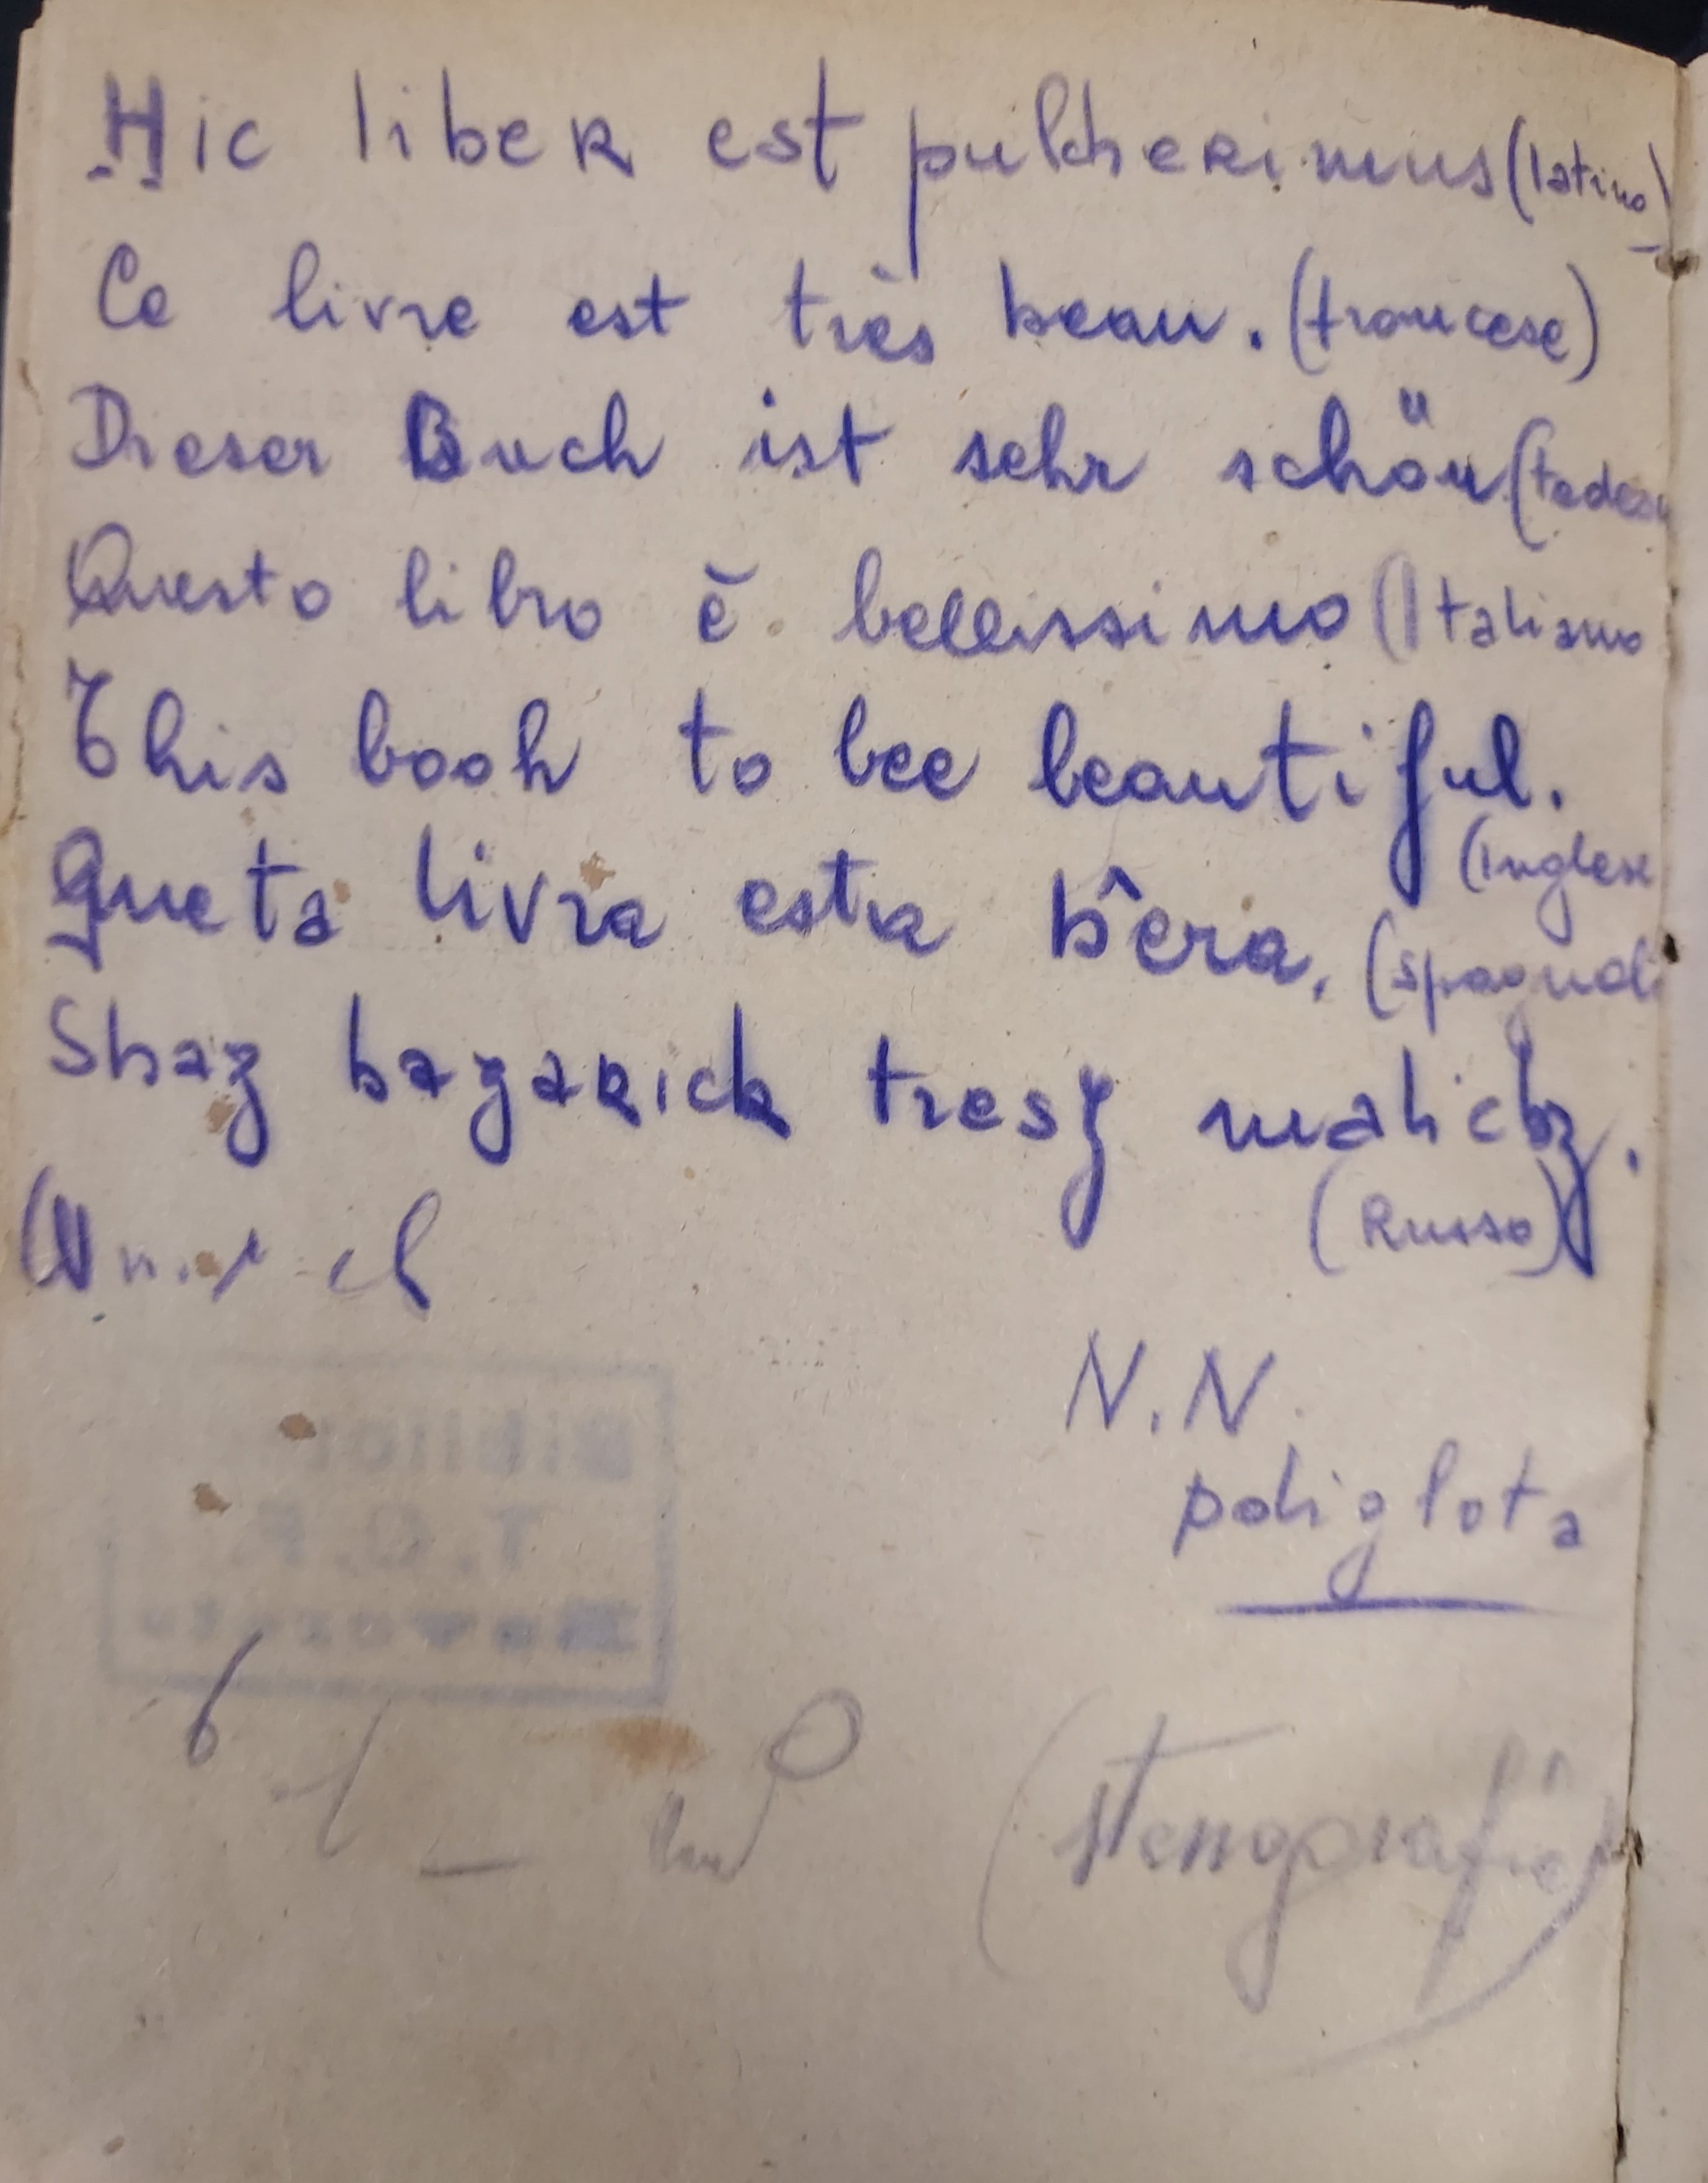 Hic liber est pulcherimus (latino)
Ce livre est très beau. (francese)
Dieser Buch ist sehr schön (tedesc
Questo libro è bellissimo (Italiano
This book to bee beautiful.
(Inglese
Queta livra esta bêra. (spagnuol
Shaz bazarick tresz malicbz.
(Russo)
N.N.
poliglota
T.C.F.
(stenografie)